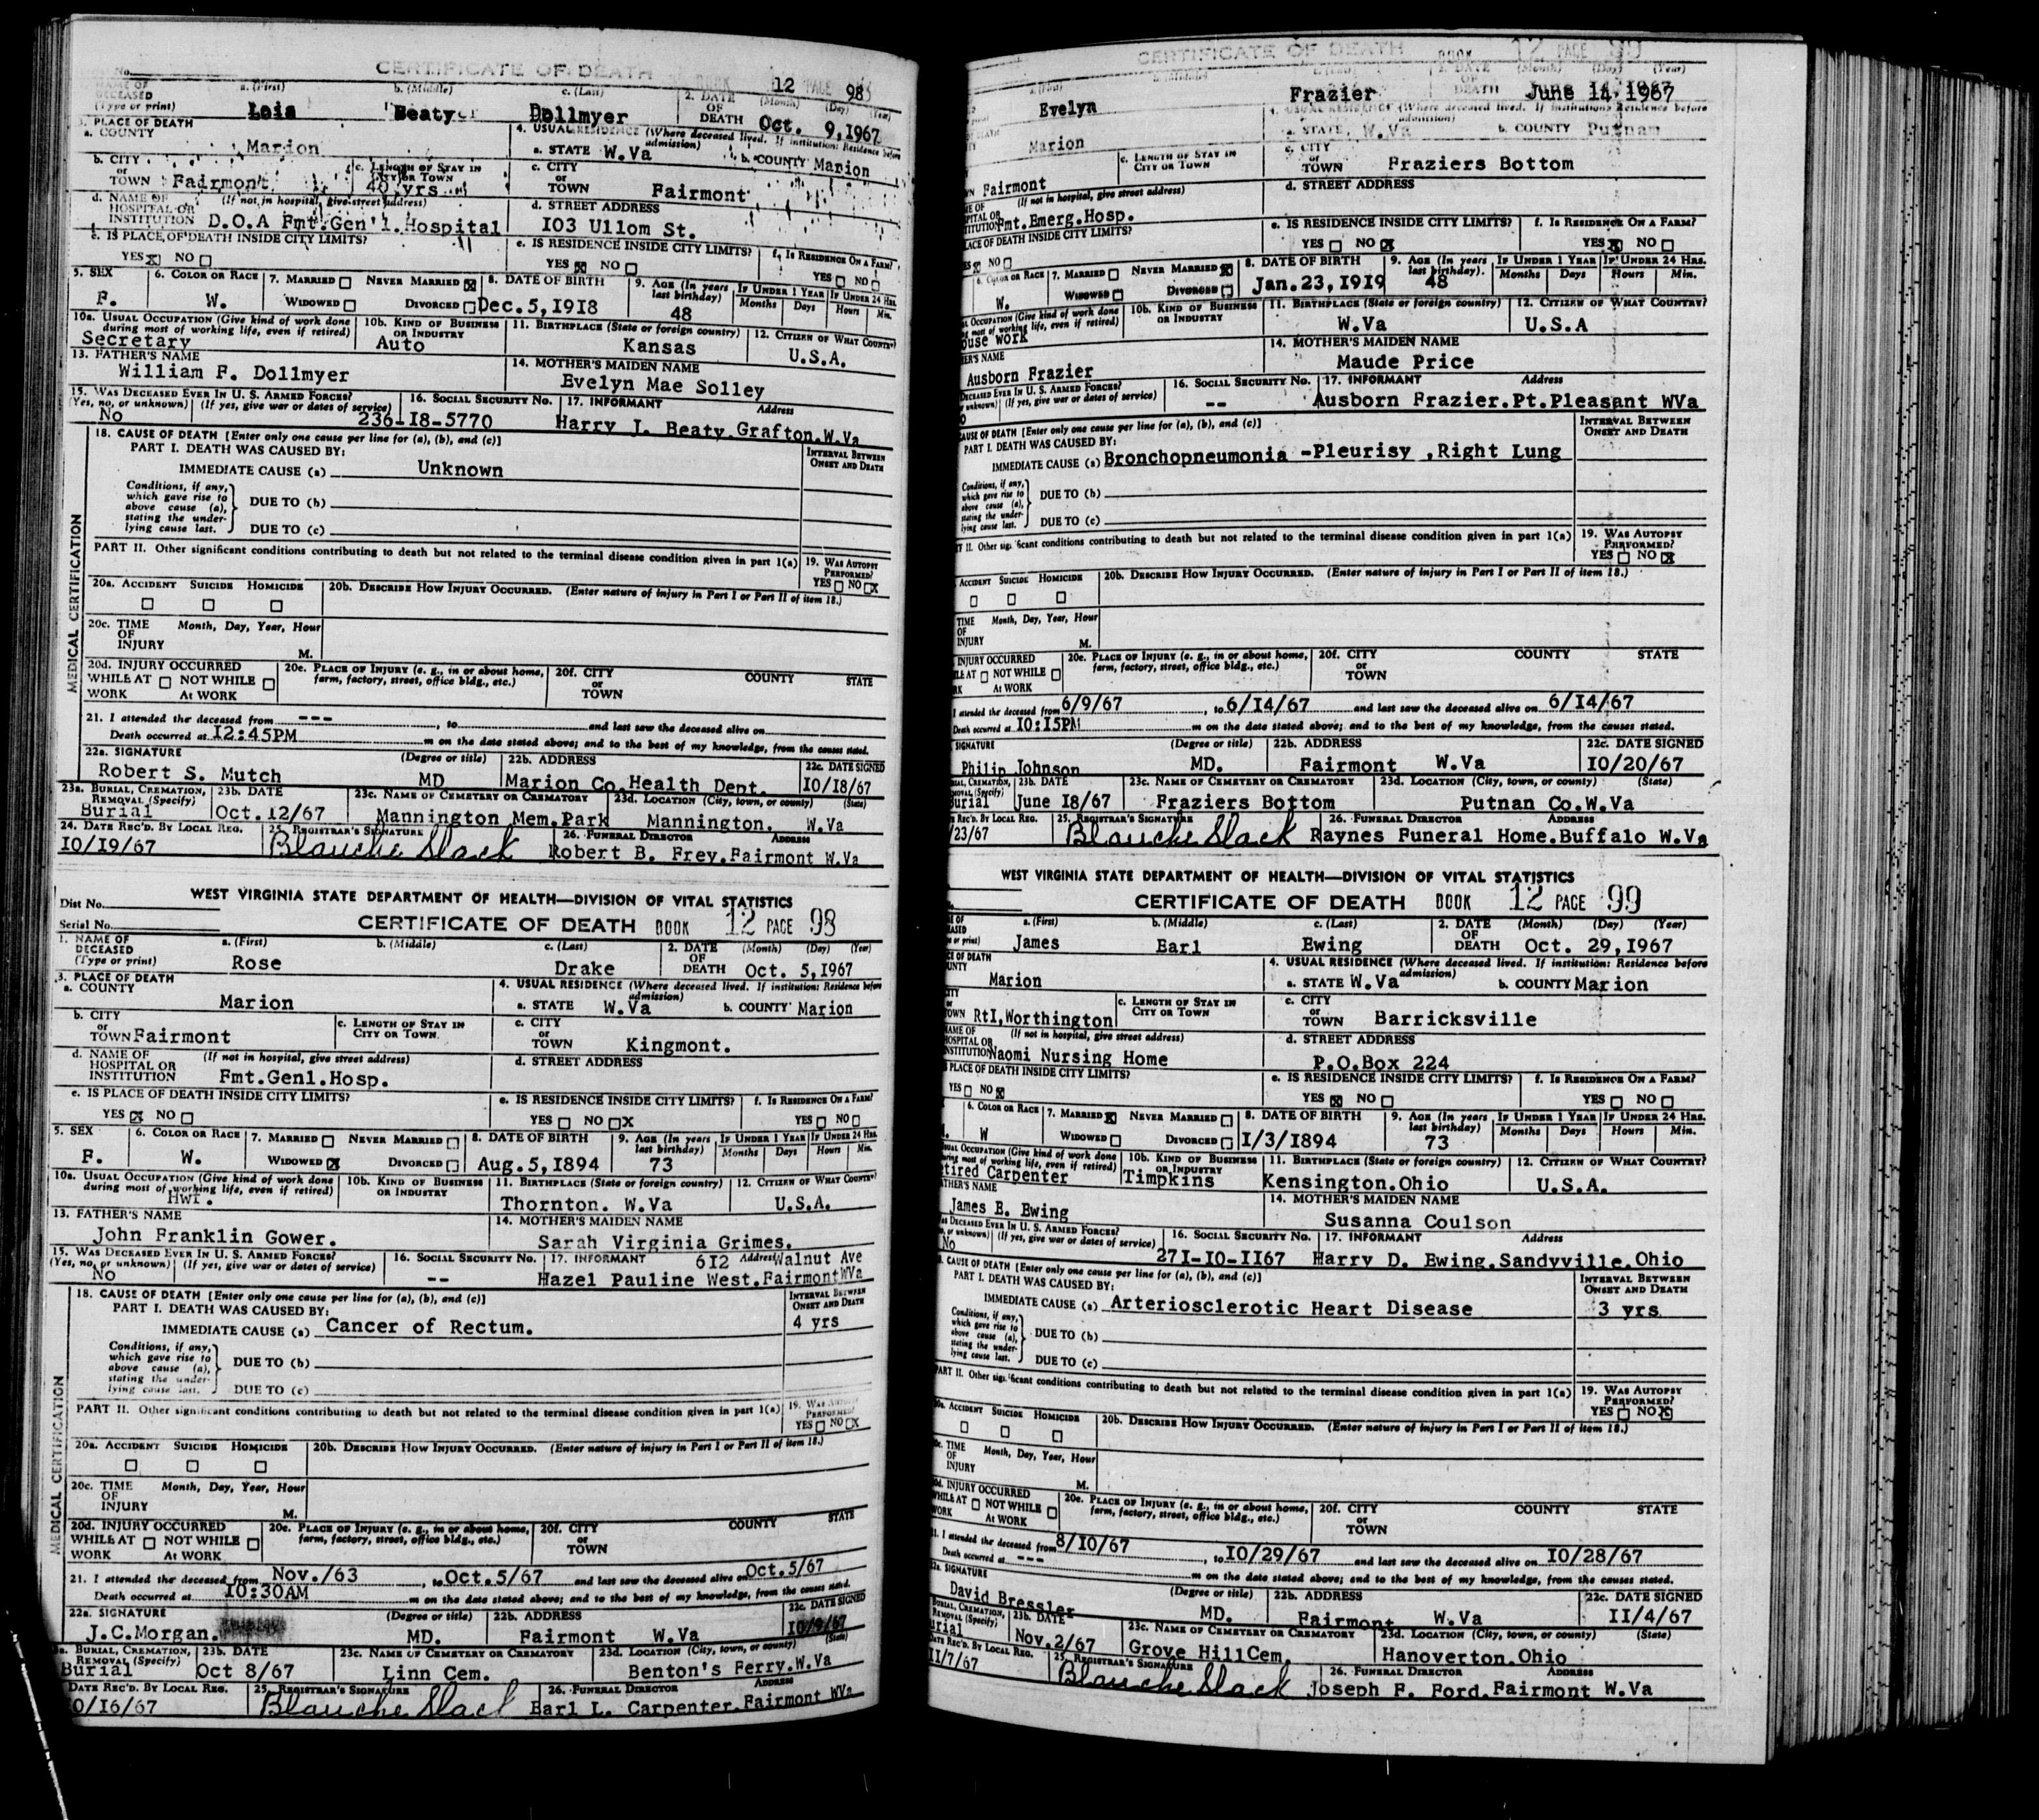 CERTIFICATE OF DEATH BOOK 12 PAGE 98
NAME OF DECEASED (Type or print) a. (First) b. (Middle) c. (Last) 2. DATE OF DEATH (Month) (Day) (Year)
Lois Beaty Dollmyer Oct. 9,1967
3. PLACE OF DEATH 4. USUAL RESIDENCE (Where deceased lived. If institution: Residence before admission)
a. COUNTY Marion a. STATE W.Va b. COUNTY Marion
b. CITY or TOWN Fairmont c. LENGTH OF STAY IN CITY OR TOWN 40 yrs c. CITY or TOWN Fairmont
d. NAME OF HOSPITAL OR INSTITUTION (If not in hospital, give street address) D.O.A Fmt.Gen'l.Hospital d. STREET ADDRESS I03 Ullom St.
e. IS PLACE OF DEATH INSIDE CITY LIMITS? YES ☒ NO ☐ e. IS RESIDENCE INSIDE CITY LIMITS? YES ☒ NO ☐ f. IS RESIDENCE ON A FARM? YES ☐ NO ☐
5. SEX F. 6. COLOR OR RACE W. 7. MARRIED ☐ NEVER MARRIED ☒ WIDOWED ☐ DIVORCED ☐ 8. DATE OF BIRTH Dec.5,1918 9. AGE (In years last birthday) 48 IF UNDER 1 YEAR Months Days IF UNDER 24 HRS. Hours Min.
10a. USUAL OCCUPATION (Give kind of work done during most of working life, even if retired) Secretary 10b. KIND OF BUSINESS OR INDUSTRY Auto 11. BIRTHPLACE (State or foreign country) Kansas 12. CITIZEN OF WHAT COUNTRY? U.S.A.
13. FATHER'S NAME William F. Dollmyer 14. MOTHER'S MAIDEN NAME Evelyn Mae Solley
15. WAS DECEASED EVER IN U. S. ARMED FORCES? (Yes, no, or unknown) (If yes, give war or dates of service) No 16. SOCIAL SECURITY NO. 236-I8-5770 17. INFORMANT Address Harry J. Beaty.Grafton.W.Va
MEDICAL CERTIFICATION
18. CAUSE OF DEATH [Enter only one cause per line for (a), (b), and (c)]
PART I. DEATH WAS CAUSED BY: INTERVAL BETWEEN ONSET AND DEATH
IMMEDIATE CAUSE (a) Unknown
Conditions, if any, which gave rise to above cause (a), stating the underlying cause last. DUE TO (b)
DUE TO (c)
PART II. Other significant conditions contributing to death but not related to the terminal disease condition given in part 1(a) 19. WAS AUTOPSY PERFORMED? YES ☐ NO ☒
20a. ACCIDENT SUICIDE HOMICIDE 20b. DESCRIBE HOW INJURY OCCURRED. (Enter nature of injury in Part I or Part II of item 18.)
20c. TIME OF INJURY Month, Day, Year, Hour M.
20d. INJURY OCCURRED WHILE AT WORK ☐ NOT WHILE AT WORK ☐ 20e. PLACE OF INJURY (e. g., in or about home, farm, factory, street, office bldg., etc.) 20f. CITY or TOWN COUNTY STATE
21. I attended the deceased from --- , to and last saw the deceased alive on
Death occurred at I2:45PM m on the date stated above; and to the best of my knowledge, from the causes stated.
22a. SIGNATURE Robert S. Mutch (Degree or title) MD 22b. ADDRESS Marion Co.Health Dept. 22c. DATE SIGNED I0/18/67
23a. BURIAL, CREMATION, REMOVAL (Specify) Burial 23b. DATE Oct.12/67 23c. NAME OF CEMETERY OR CREMATORY Mannington Mem.Park 23d. LOCATION (City, town, or county) (State) Mannington. W.Va
24. DATE REC'D. BY LOCAL REG. I0/19/67 25. REGISTRAR'S SIGNATURE Blanche Slack 26. FUNERAL DIRECTOR ADDRESS Robert B. Frey.Fairmont W.Va
WEST VIRGINIA STATE DEPARTMENT OF HEALTH—DIVISION OF VITAL STATISTICS
Dist No.
Serial No. CERTIFICATE OF DEATH BOOK 12 PAGE 98
1. NAME OF DECEASED (Type or print) a. (First) b. (Middle) c. (Last) 2. DATE OF DEATH (Month) (Day) (Year)
Rose Drake Oct. 5,1967
3. PLACE OF DEATH 4. USUAL RESIDENCE (Where deceased lived. If institution: Residence before admission)
a. COUNTY Marion a. STATE W.Va b. COUNTY Marion
b. CITY or TOWN Fairmont c. LENGTH OF STAY IN CITY OR TOWN c. CITY or TOWN Kingmont.
d. NAME OF HOSPITAL OR INSTITUTION (If not in hospital, give street address) Fmt.Genl.Hosp. d. STREET ADDRESS
e. IS PLACE OF DEATH INSIDE CITY LIMITS? YES ☒ NO ☐ e. IS RESIDENCE INSIDE CITY LIMITS? YES ☐ NO ☒ f. IS RESIDENCE ON A FARM? YES ☐ NO ☐
5. SEX F. 6. COLOR OR RACE W. 7. MARRIED ☐ NEVER MARRIED ☐ WIDOWED ☒ DIVORCED ☐ 8. DATE OF BIRTH Aug.5,1894 9. AGE (In years last birthday) 73 IF UNDER 1 YEAR Months Days IF UNDER 24 HRS. Hours Min.
10a. USUAL OCCUPATION (Give kind of work done during most of working life, even if retired) Hwf. 10b. KIND OF BUSINESS OR INDUSTRY 11. BIRTHPLACE (State or foreign country) Thornton. W.Va 12. CITIZEN OF WHAT COUNTRY? U.S.A.
13. FATHER'S NAME John Franklin Gower. 14. MOTHER'S MAIDEN NAME Sarah Virginia Grimes.
15. WAS DECEASED EVER IN U. S. ARMED FORCES? (Yes, no, or unknown) (If yes, give war or dates of service) No 16. SOCIAL SECURITY NO. -- 17. INFORMANT Address 6I2 Walnut Ave Hazel Pauline West.Fairmont WVa
MEDICAL CERTIFICATION
18. CAUSE OF DEATH [Enter only one cause per line for (a), (b), and (c)]
PART I. DEATH WAS CAUSED BY: INTERVAL BETWEEN ONSET AND DEATH
IMMEDIATE CAUSE (a) Cancer of Rectum. 4 yrs
Conditions, if any, which gave rise to above cause (a), stating the underlying cause last. DUE TO (b)
DUE TO (c)
PART II. Other significant conditions contributing to death but not related to the terminal disease condition given in part 1(a) 19. WAS AUTOPSY PERFORMED? YES ☐ NO ☒
20a. ACCIDENT SUICIDE HOMICIDE 20b. DESCRIBE HOW INJURY OCCURRED. (Enter nature of injury in Part I or Part II of item 18.)
20c. TIME OF INJURY Month, Day, Year, Hour M.
20d. INJURY OCCURRED WHILE AT WORK ☐ NOT WHILE AT WORK ☐ 20e. PLACE OF INJURY (e. g., in or about home, farm, factory, street, office bldg., etc.) 20f. CITY or TOWN COUNTY STATE
21. I attended the deceased from Nov./63 , to Oct.5/67 and last saw the deceased alive on Oct.5/67
Death occurred at I0:30AM m on the date stated above; and to the best of my knowledge, from the causes stated.
22a. SIGNATURE J.C.Morgan. (Degree or title) MD. 22b. ADDRESS Fairmont W.Va 22c. DATE SIGNED I0/9/67
BURIAL, CREMATION, REMOVAL (Specify) Burial 23b. DATE Oct 8/67 23c. NAME OF CEMETERY OR CREMATORY Linn Cem. 23d. LOCATION (City, town, or county) (State) Benton's Ferry.W.Va
DATE REC'D. BY LOCAL REG. 0/16/67 25. REGISTRAR'S SIGNATURE Blanche Slack 26. FUNERAL DIRECTOR ADDRESS Earl L. Carpenter.Fairmont WVa
CERTIFICATE OF DEATH BOOK 12 PAGE 99
a. (First) b. (Middle) c. (Last) 2. DATE OF DEATH (Month) (Day) (Year)
Evelyn Frazier June 14,1967
4. USUAL RESIDENCE (Where deceased lived. If institution: Residence before admission)
Marion a. STATE W.Va b. COUNTY Putnam
Fairmont c. LENGTH OF STAY IN CITY OR TOWN c. CITY or TOWN Fraziers Bottom
(If not in hospital, give street address) Fmt.Emerg.Hosp. d. STREET ADDRESS
PLACE OF DEATH INSIDE CITY LIMITS? YES ☒ NO ☐ e. IS RESIDENCE INSIDE CITY LIMITS? YES ☐ NO ☒ f. IS RESIDENCE ON A FARM? YES ☒ NO ☐
6. COLOR OR RACE W. 7. MARRIED ☐ NEVER MARRIED ☒ WIDOWED ☐ DIVORCED ☐ 8. DATE OF BIRTH Jan.23,1919 9. AGE (In years last birthday). 48 IF UNDER 1 YEAR Months Days IF UNDER 24 HRS. Hours Min.
OCCUPATION (Give kind of work done most of working life, even if retired) ouse work 10b. KIND OF BUSINESS OR INDUSTRY 11. BIRTHPLACE (State or foreign country) W.Va 12. CITIZEN OF WHAT COUNTRY? U.S.A
ER'S NAME Ausborn Frazier 14. MOTHER'S MAIDEN NAME Maude Price
DECEASED EVER IN U. S. ARMED FORCES? unknown) (If yes, give war or dates of service) 16. SOCIAL SECURITY NO. -- 17. INFORMANT Address Ausborn Frazier.Pt.Pleasant WVa
CAUSE OF DEATH [Enter only one cause per line for (a), (b), and (c)]
PART I. DEATH WAS CAUSED BY: INTERVAL BETWEEN ONSET AND DEATH
IMMEDIATE CAUSE (a) Bronchopneumonia -Pleurisy ,Right Lung
Conditions, if any, which gave rise to above cause (a), stating the underlying cause last. DUE TO (b)
DUE TO (c)
II. Other significant conditions contributing to death but not related to the terminal disease condition given in part 1(a) 19. WAS AUTOPSY PERFORMED? YES ☐ NO ☒
ACCIDENT SUICIDE HOMICIDE 20b. DESCRIBE HOW INJURY OCCURRED. (Enter nature of injury in Part I or Part II of item 18.)
TIME OF INJURY Month, Day, Year, Hour M.
INJURY OCCURRED AT ☐ NOT WHILE AT WORK ☐ 20e. PLACE OF INJURY (e. g., in or about home, farm, factory, street, office bldg., etc.) 20f. CITY or TOWN COUNTY STATE
I attended the deceased from 6/9/67 , to 6/I4/67 and last saw the deceased alive on 6/I4/67
Death occurred at I0:I5PM m on the date stated above; and to the best of my knowledge, from the causes stated.
SIGNATURE Philip Johnson (Degree or title) MD. 22b. ADDRESS Fairmont W.Va 22c. DATE SIGNED I0/20/67
CREMATION, (Specify) Burial 23b. DATE June I8/67 23c. NAME OF CEMETERY OR CREMATORY Fraziers Bottom 23d. LOCATION (City, town, or county) (State) Putnan Co.W.Va
REC'D. BY LOCAL REG. /23/67 25. REGISTRAR'S SIGNATURE Blanche Slack 26. FUNERAL DIRECTOR ADDRESS Raynes Funeral Home.Buffalo W.Va
WEST VIRGINIA STATE DEPARTMENT OF HEALTH—DIVISION OF VITAL STATISTICS
CERTIFICATE OF DEATH BOOK 12 PAGE 99
a. (First) b. (Middle) c. (Last) 2. DATE OF DEATH (Month) (Day) (Year)
James Earl Ewing Oct. 29,1967
OF DEATH 4. USUAL RESIDENCE (Where deceased lived. If institution: Residence before admission)
Marion a. STATE W.Va b. COUNTY Marion
TOWN RtI,Worthington c. LENGTH OF STAY IN CITY OR TOWN c. CITY or TOWN Barricksville
NAME OF HOSPITAL OR INSTITUTION (If not in hospital, give street address) Naomi Nursing Home d. STREET ADDRESS P.O.Box 224
PLACE OF DEATH INSIDE CITY LIMITS? YES ☐ NO ☒ e. IS RESIDENCE INSIDE CITY LIMITS? YES ☒ NO ☐ f. IS RESIDENCE ON A FARM? YES ☐ NO ☐
6. COLOR OR RACE W 7. MARRIED ☒ NEVER MARRIED ☐ WIDOWED ☐ DIVORCED ☐ 8. DATE OF BIRTH I/3/I894 9. AGE (In years last birthday) 73 IF UNDER 1 YEAR Months Days IF UNDER 24 HRS. Hours Min.
USUAL OCCUPATION (Give kind of work done during most of working life, even if retired) etired Carpenter 10b. KIND OF BUSINESS OR INDUSTRY Timpkins 11. BIRTHPLACE (State or foreign country) Kensington.Ohio 12. CITIZEN OF WHAT COUNTRY? U.S.A.
FATHER'S NAME James E. Ewing 14. MOTHER'S MAIDEN NAME Susanna Coulson
DECEASED EVER IN U. S. ARMED FORCES? or unknown) (If yes, give war or dates of service) No 16. SOCIAL SECURITY NO. 27I-I0-II67 17. INFORMANT Address Harry D. Ewing.Sandyville.Ohio
CAUSE OF DEATH [Enter only one cause per line for (a), (b), and (c)]
PART I. DEATH WAS CAUSED BY: INTERVAL BETWEEN ONSET AND DEATH
IMMEDIATE CAUSE (a) Arteriosclerotic Heart Disease 3 yrs
Conditions, if any, which gave rise to above cause (a), stating the underlying cause last. DUE TO (b)
DUE TO (c)
PART II. Other significant conditions contributing to death but not related to the terminal disease condition given in part 1(a) 19. WAS AUTOPSY PERFORMED? YES ☐ NO ☒
ACCIDENT SUICIDE HOMICIDE 20b. DESCRIBE HOW INJURY OCCURRED. (Enter nature of injury in Part I or Part II of item 18.)
TIME OF INJURY Month, Day, Year, Hour M.
INJURY OCCURRED WHILE AT WORK ☐ NOT WHILE AT WORK ☐ 20e. PLACE OF INJURY (e. g., in or about home, farm, factory, street, office bldg., etc.) 20f. CITY or TOWN COUNTY STATE
I attended the deceased from 8/I0/67 , to I0/29/67 and last saw the deceased alive on I0/28/67
Death occurred at --- m on the date stated above; and to the best of my knowledge, from the causes stated.
SIGNATURE David Bressler (Degree or title) MD. 22b. ADDRESS Fairmont W.Va 22c. DATE SIGNED II/4/67
BURIAL, CREMATION, REMOVAL (Specify) urial 23b. DATE Nov.2/67 23c. NAME OF CEMETERY OR CREMATORY Grove HillCem. 23d. LOCATION (City, town, or county) (State) Hanoverton.Ohio
DATE REC'D. BY LOCAL REG. II/7/67 25. REGISTRAR'S SIGNATURE Blanche Slack 26. FUNERAL DIRECTOR ADDRESS Joseph F. Ford.Fairmont W.Va